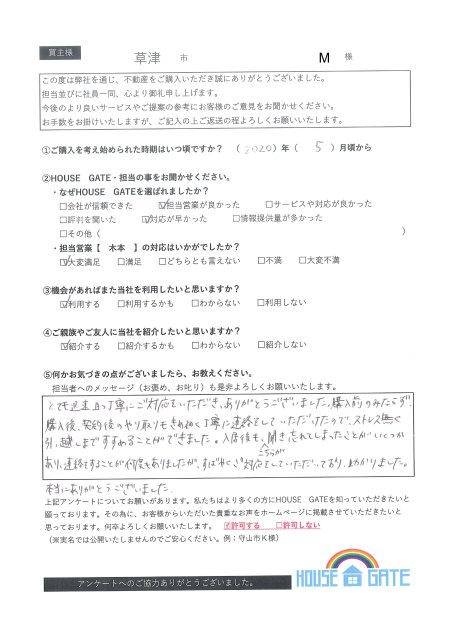 買主様
草津 市 M 様
この度は弊社を通じ、不動産をご購入いただき誠にありがとうございました。
担当並びに社員一同、心より御礼申し上げます。
今後のより良いサービスやご提案の参考にお客様のご意見をお聞かせください。
お手数をお掛けいたしますが、ご記入の上ご返送の程よろしくお願いいたします。
①ご購入を考え始められた時期はいつ頃ですか？ （2020）年（ 5 ）月頃から
②HOUSE GATE・担当の事をお聞かせください。
・なぜHOUSE GATEを選ばれましたか？
□会社が信頼できた ☑担当営業が良かった □サービスや対応が良かった
□評判を聞いた ☑対応が早かった □情報提供量が多かった
□その他（ ）
・担当営業【 木本 】の対応はいかがでしたか？
☑大変満足 □満足 □どちらとも言えない □不満 □大変不満
③機会があればまた当社を利用したいと思いますか？
☑利用する □利用するかも □わからない □利用しない
④ご親族やご友人に当社を紹介したいと思いますか？
☑紹介する □紹介するかも □わからない □紹介しない
⑤何かお気づきの点がございましたら、お教えください。
担当者へのメッセージ（お褒め、お叱り）も是非よろしくお願いします。
とても迅速且つ丁寧にご対応をいただき、ありがとうございました。購入前のみならず、
購入後、契約後のやり取りもきめ細く丁寧に連絡をしていただけたので、ストレス無く
引越しまですすめることができました。入居後も、こちらが聞き忘れてしまったことがいくつか
あり、連絡をすることが何度もありましたが、すばやくご対応をしていただいており、助かりました。
本当にありがとうございました。
上記アンケートについてお願いがあります。私たちはより多くの方にHOUSE GATEを知っていただきたいと
願っております。その為に、お客様からいただいた貴重なお声をホームページに掲載させていただきたいと
思っております。何卒よろしくお願いいたします。 ☑許可する □許可しない
（※実名では公開いたしませんのでご安心ください。例：守山市K様）
アンケートへのご協力ありがとうございました。
HOUSE GATE